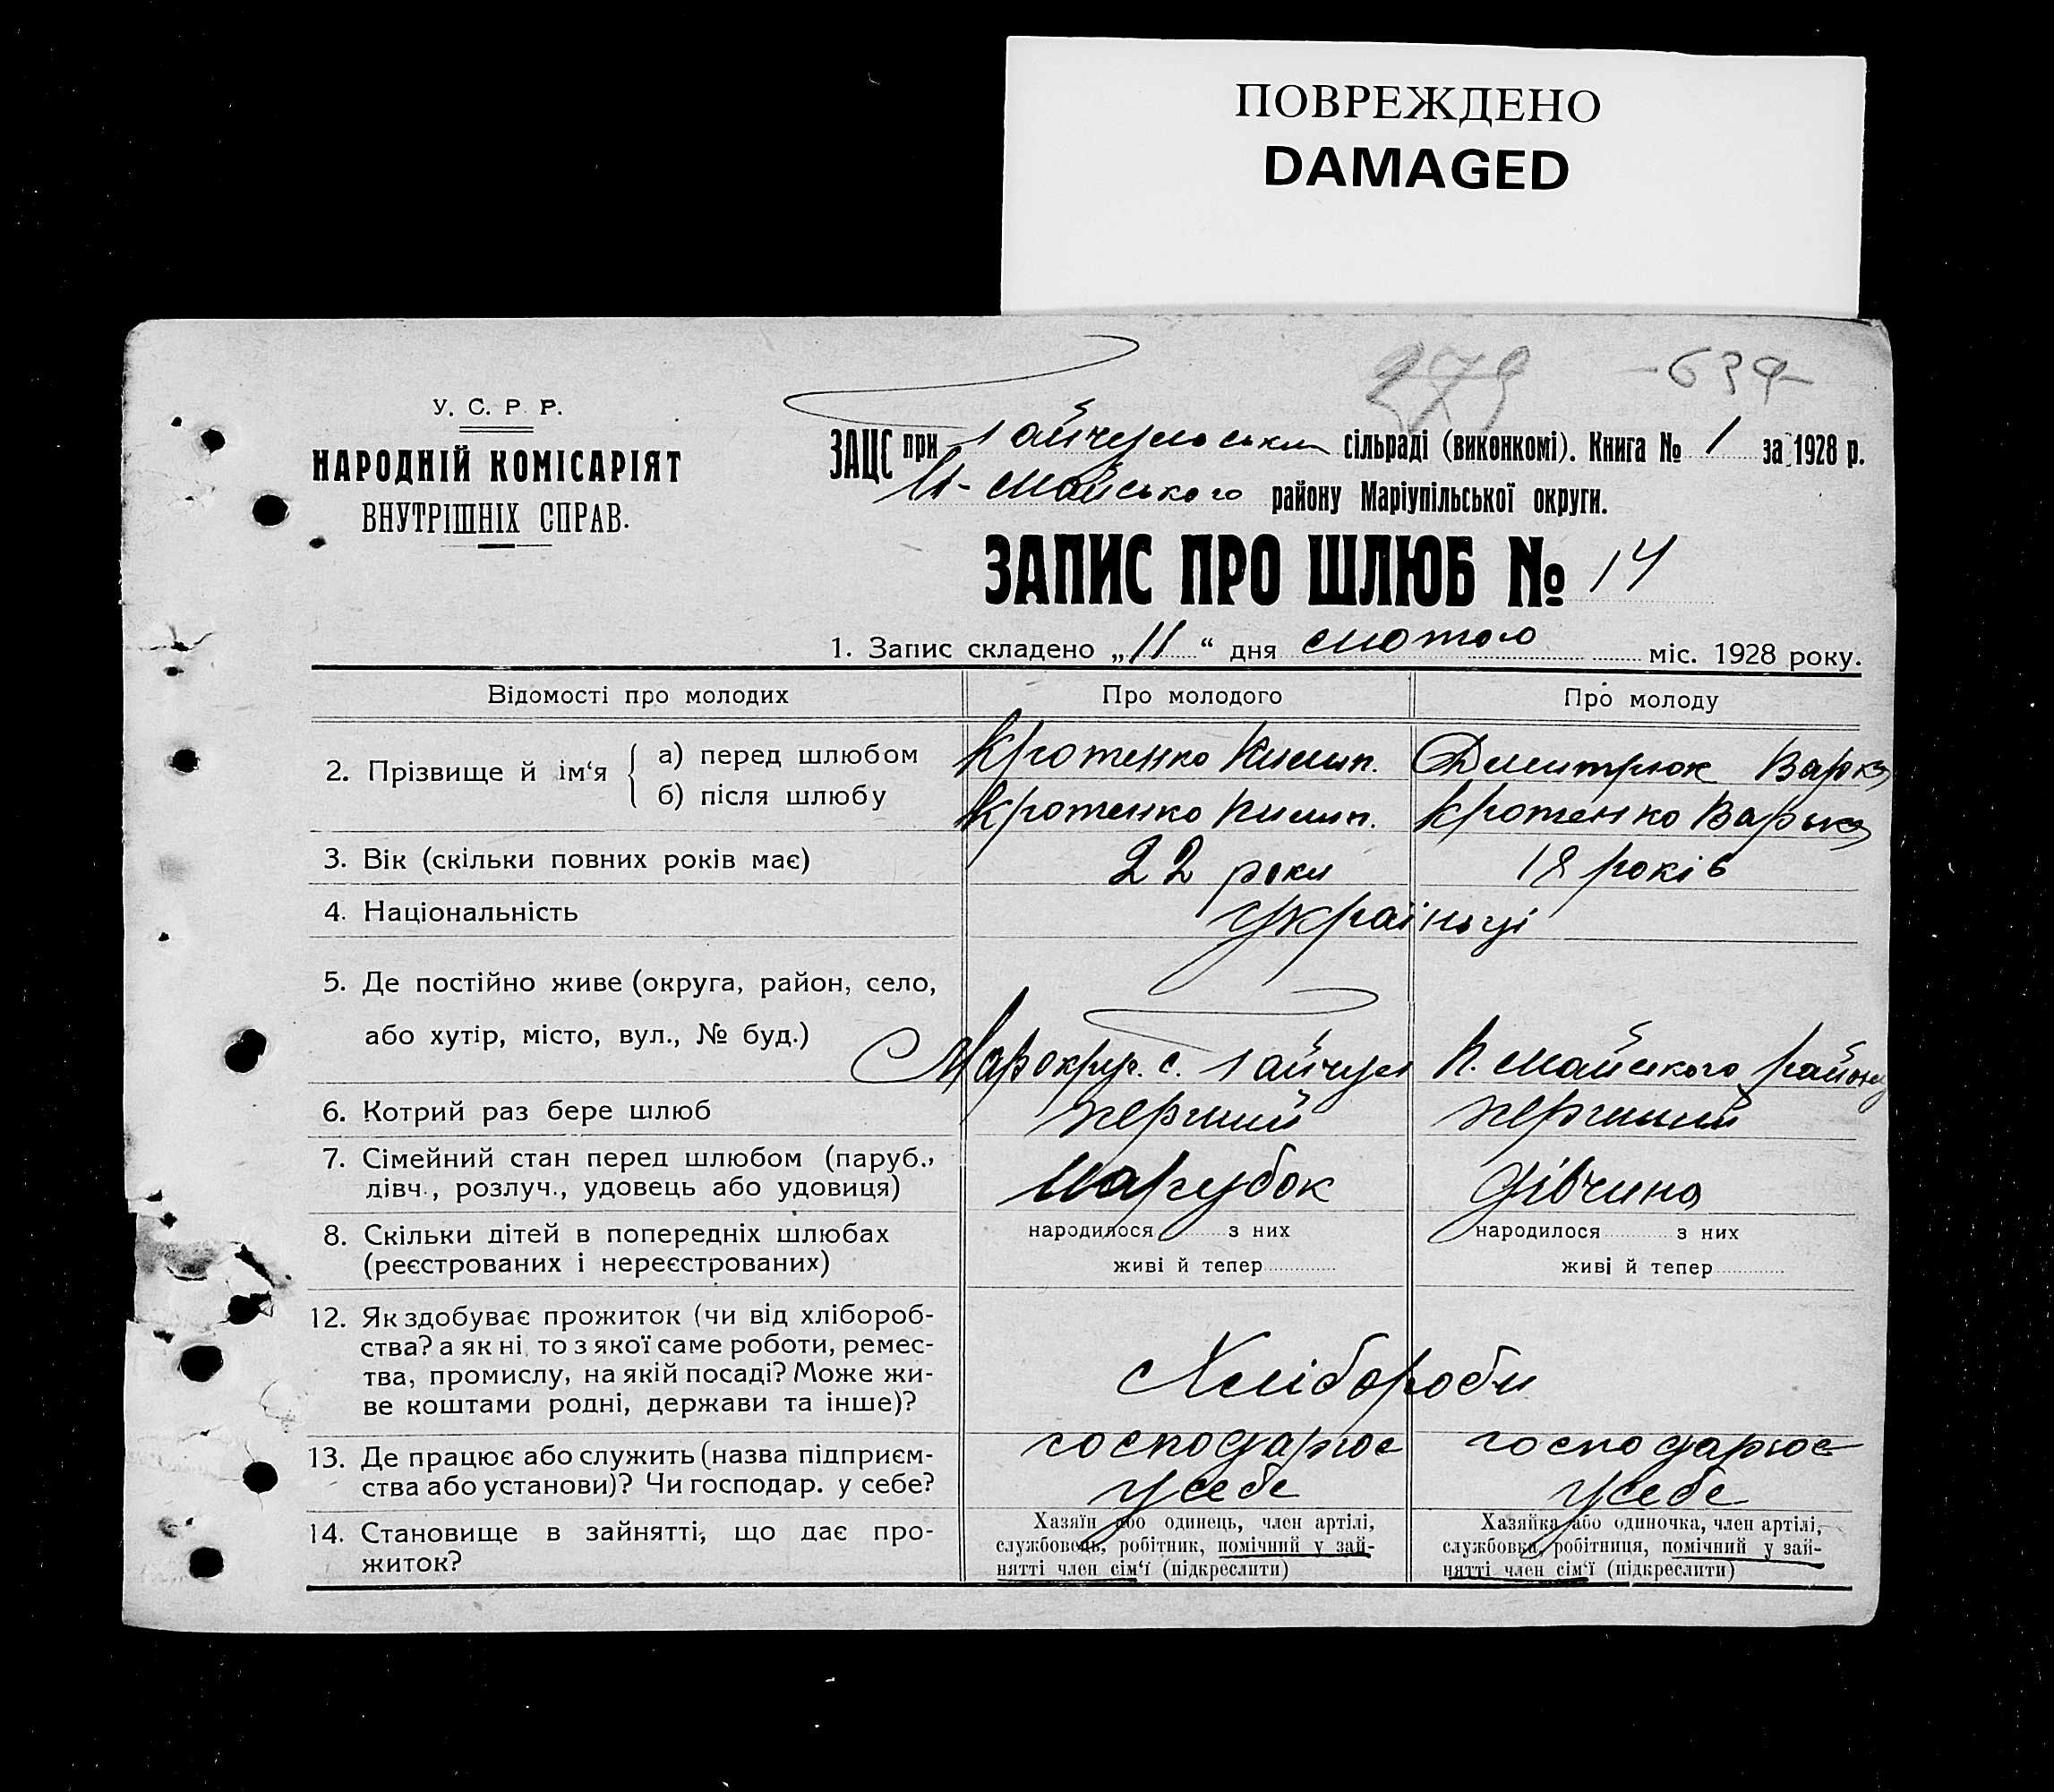 ПОВРЕЖДЕНО
DAMAGED
279 -639-
У. С. Р. Р.
НАРОДНІЙ КОМІСАРІЯТ
ВНУТРІШНІХ СПРАВ.
ЗАЦС при Гайчульськи сільраді (виконкомі). Книга № 1 за 1928 р.
П-Майського району Маріупільської округи.
ЗАПИС ПРО ШЛЮБ № 14
1. Запис складено „11“ дня лютого міс. 1928 року.
Відомості про молодих Про молодого Про молоду
2. Прізвище й ім‘я
а) перед шлюбом Кротенко Пилип. Дмитрюк Варка
б) після шлюбу Кротенко Пилип. Кротенко Варька
3. Вік (скільки повних років має) 22 роки 18 років
4. Національність українці
5. Де постійно живе (округа, район, село,
або хутір, місто, вул., № буд.) Марокруг. с. Гайчул П. Майського району
6. Котрий раз бере шлюб перший перший
7. Сімейний стан перед шлюбом (паруб.,
дівч., розлуч., удовець або удовиця) парубок дівчина
8. Скільки дітей в попередніх шлюбах народилося з них народилося з них
(реєстрованих і нереєстрованих) живі й тепер живі й тепер
12. Як здобуває прожиток (чи від хлібороб-
ства? а як ні, то з якої саме роботи, ремес-
тва, промислу, на якій посаді? Може жи-
ве коштами родні, держави та інше)? Хлібороби
13. Де працює або служить (назва підприєм- господарює господарює
ства або установи)? Чи господар. у себе? у себе у себе
14. Становище в зайнятті, що дає про-
житок?
Хазяїн або одинець, член артілі,
службовець, робітник, помічний у зай-
нятті член сім‘ї (підкреслити)
Хазяйка або одиночка, член артілі,
службовка, робітниця, помічний у зай-
нятті член сім‘ї (підкреслити)